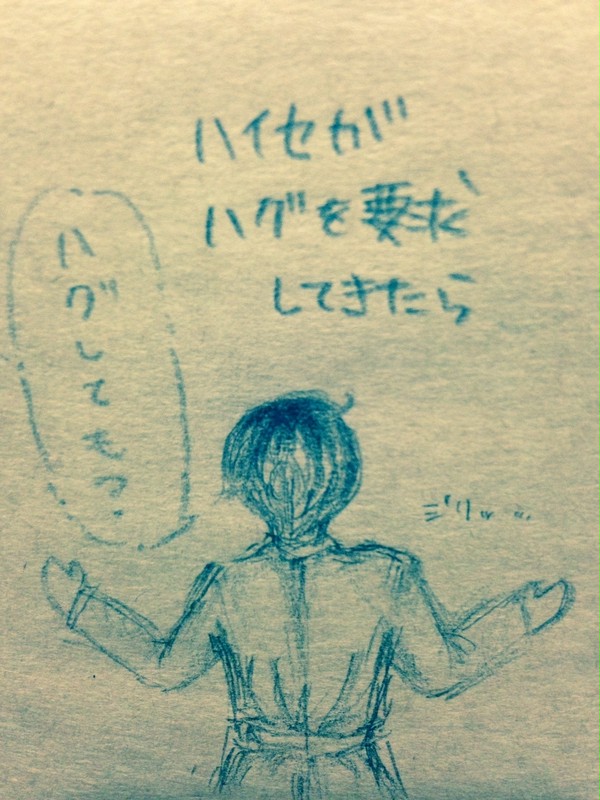 ハイセが
ハグを要求
してきたら
ハグしてもっ
ジリッ…